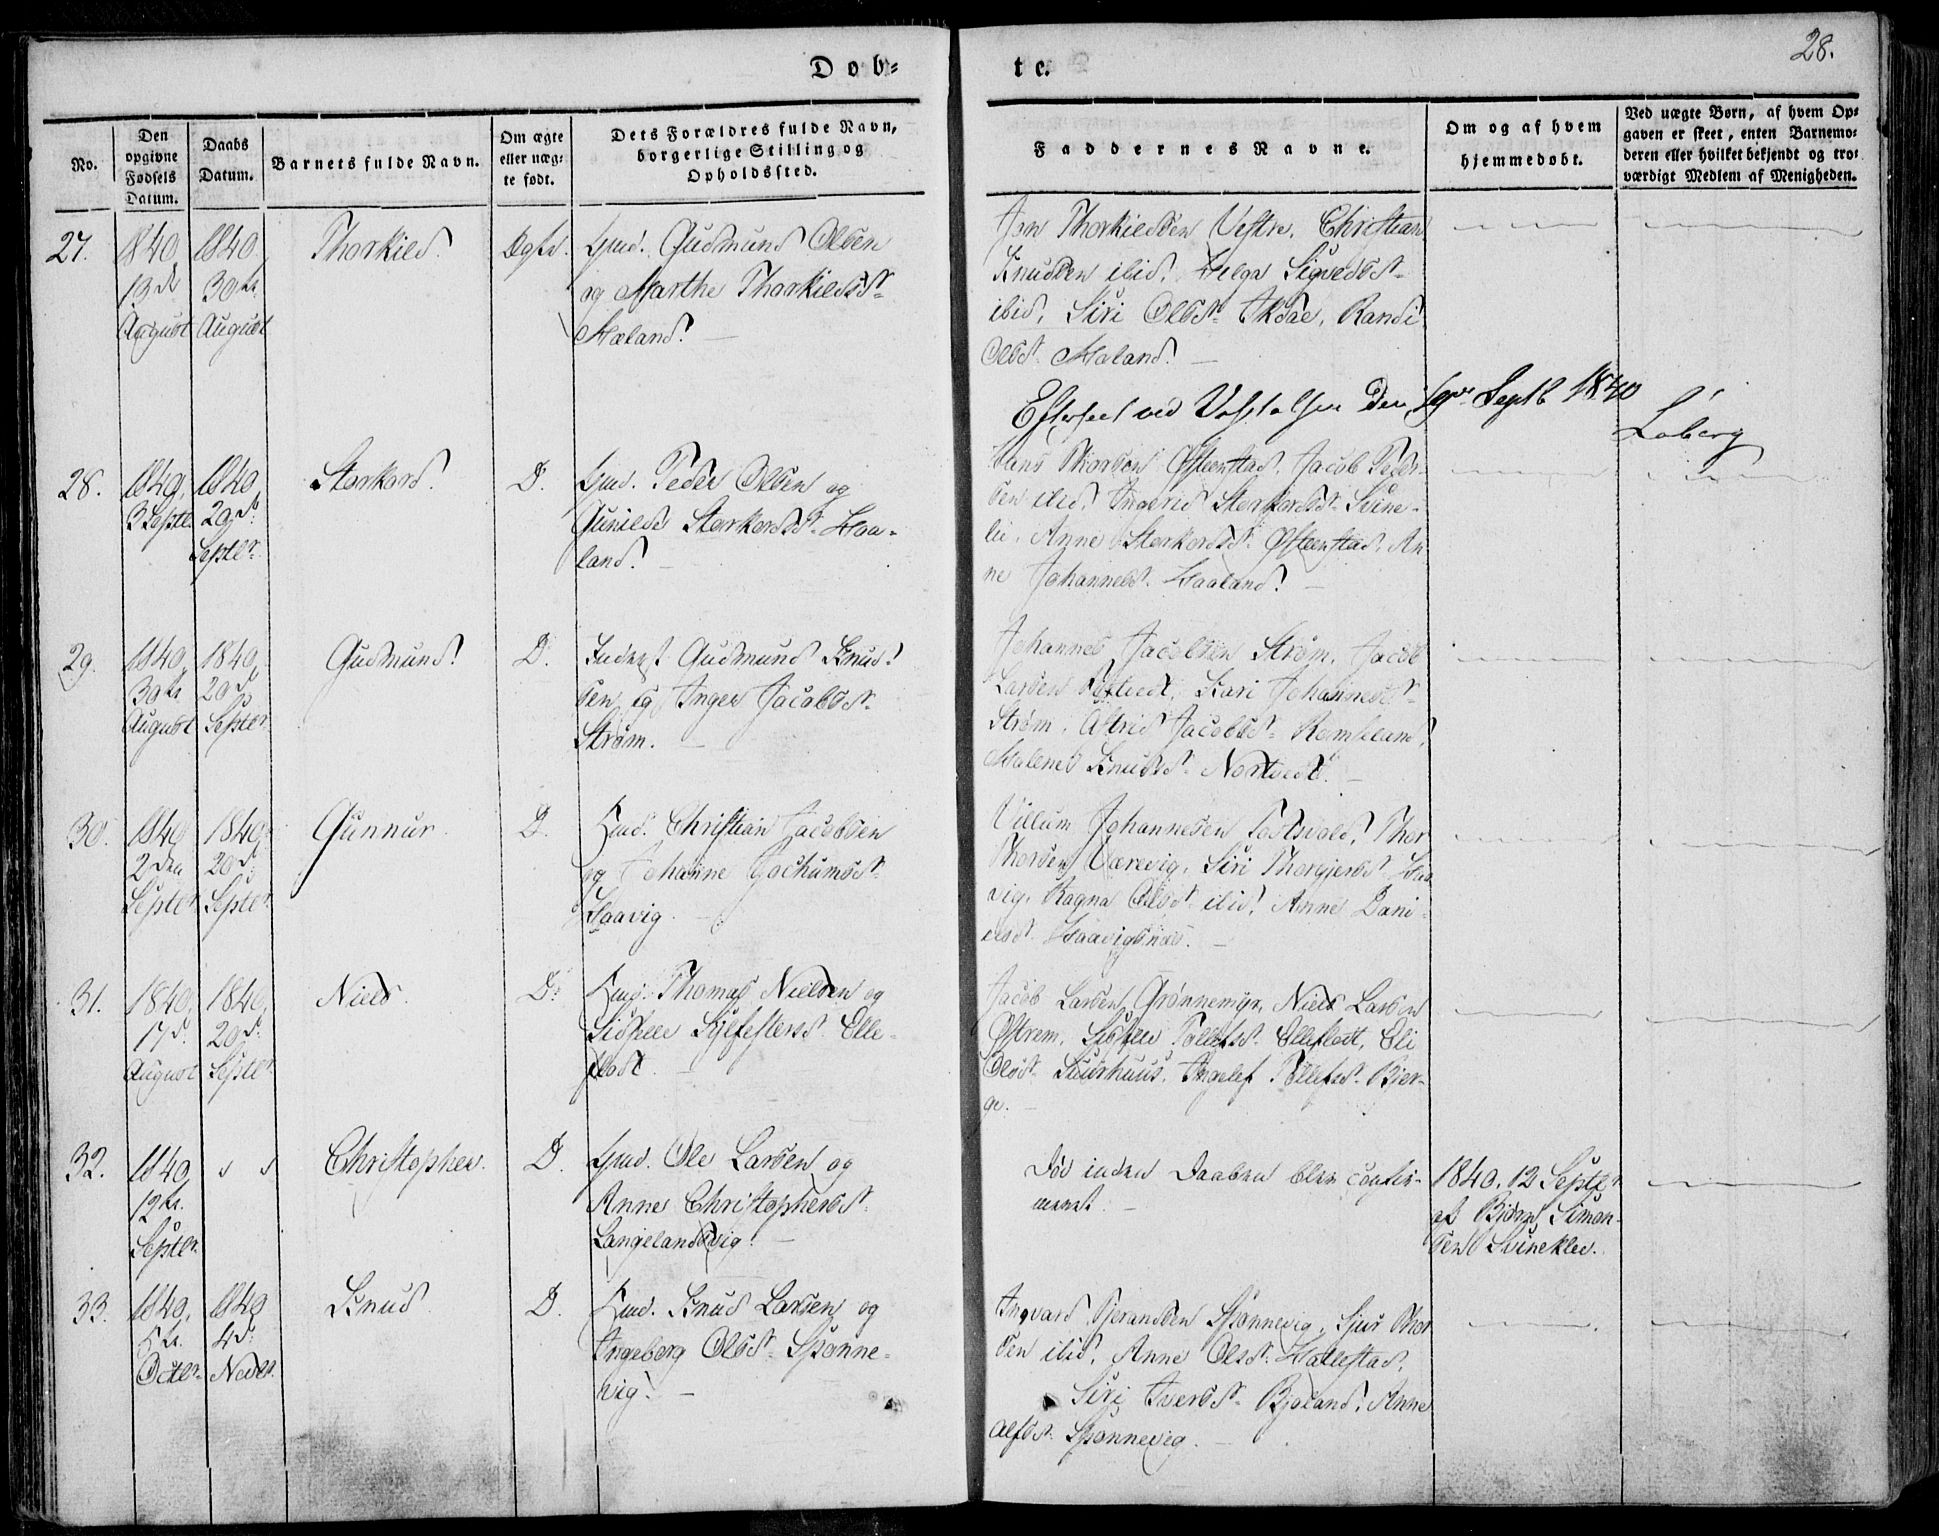 28.
Døb=
te.
No.
Den
opgivne
Fødsels
Datum.
Daabs
Datum.
Barnets fulde Navn.
Om ægte
eller uæg=
te født.
Dets Forældres fulde Navn,
borgerlige Stilling og
Opholdssted.
Faddernes Navne.
Om og af hvem
hjemmedøbt.
Ved uægte Børn, af hvem Op=
gaven er skeet, enten Barnemo=
deren eller hvilket bekjendt og tro=
værdigt Medlem af Menigheden.
27.
1840
13de
August
1840
30te
August
Thorkild.
Ægte.
Gmd. Gudmund Olsen
og Marthe Thorkildsd.
Hæland.
Jon Thorkildsen Vestre, Christian
Knudsen ibid. Helga Sigvedsd.
ibid, Siri Olsd. Randi
Olsd. Haland.
Efterseet ved Visitatsen Den Septb 1840
Loberg
28.
1840,
3 Septbr.
1840
20d.
Septbr.
Storkord.
D.
Gmd. Peder Olsen og
Gunilde Storkordsd. Haa-
land.
Hans Thorsen Østenstad, Jacob Peder-
sen ibid, Ingerid Storkordsd. Svine-
lie, Anne Storkordsd. Østenstad, An
ne Johannesd. Haaland.
29.
1840,
30te
August
1840,
20d.
Septbr.
Gudmund.
D.
Inderst Gudmund Knud-
sen og Inger Jacobsd.
Strøm.
Johannes Jacobsen Strøm, Jacob
Larsen Kari Johannesd.
Strøm, Astrid Jacobsd.
Malene Knudsd. Nortvedt.
30.
1840
2den
Septbr.
1840
20d.
Septbr.
Gunnar
D.
Hmd. Christian Jacobsen
og Johanne Jochumsd.
Haavig.
Villum Johannesen Thor
Thorsen Siri Thorgjersd. Haa
vig, Ragna Olsd. ibid. Anne Dani-
elsd. Haavigsnæs.
31.
1840,
17d.
August
1840,
20d.
Septbr.
Niels.
D.
Hmd. Thomas Nielsen og
Elle-
flødt.
Jacob Larsen Grønnemyr, Niels Larsen
Østrem, Tollefsd. Elleflødt, Eli
Olsd. Skuurhuus, Tollefsd. Bjer-
ge.
32.
1840,
12te.
Septbr.
Christopher.
D.
Gmd. Ole Larsen og
Anne Christophersd.
Langelandsvig.
Død inden Daaben blev confir-
meret.
1840, 12 Septbr
af Bjørn Simon-
sen Svineklev.
33.
1840,
5te.
Octbr.
1840
4d.
Novbr.
Knud.
D.
Hmd. Knud Larsen og
Ingeborg Olsd. Spønne-
vig.
Ingvard Tjerandsen Spønnevig, Sjur Thor
sen ibid, Anne Olsd. Hallestad,
Siri Iversd. Bjoland, Anne
Alfsd. Spønnevig.